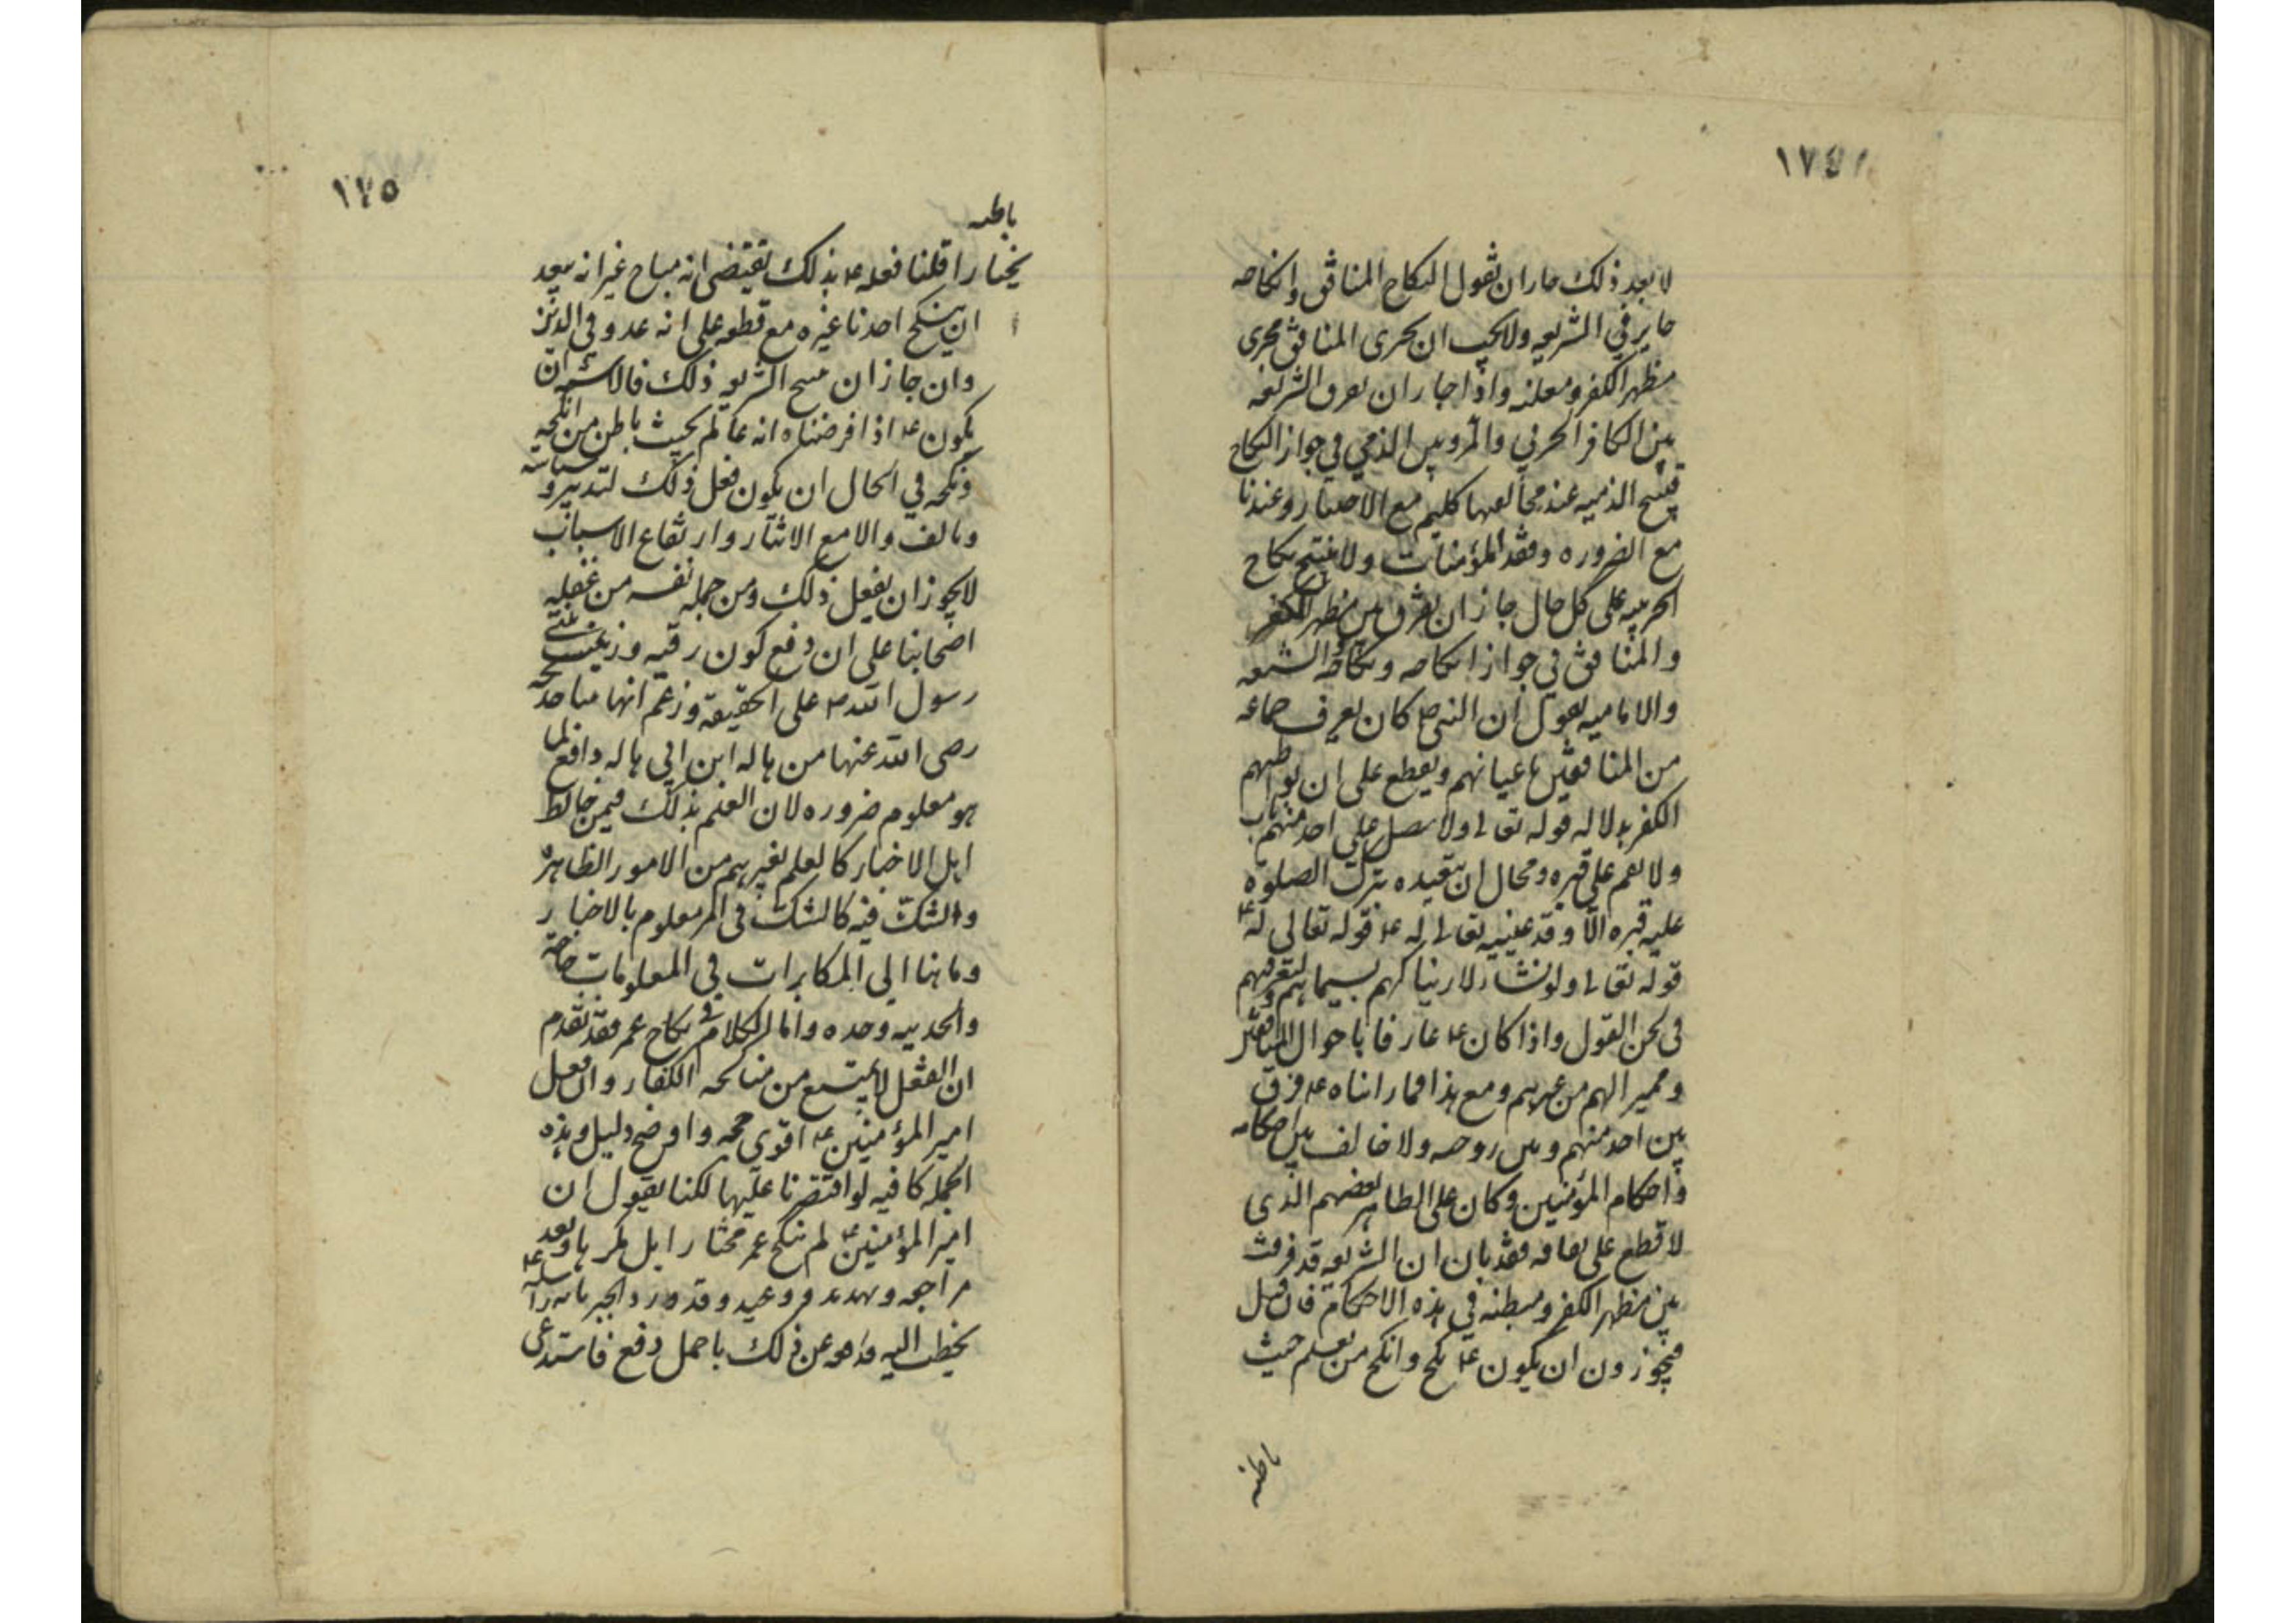 ١٧٤
لا بعد ذلك جاز ان نقول النكاح المنافق وانكاحه
جايز في الشريعه ولا يجب ان يجرى المنافق مجرى
مظهر الكفر ومعلنه واذا جاز ان تفرق الشريعه
بين الكافر الحربي والمرتد وبين الذمي في جواز النكاح
الذميه عند مخالفينا كلهم مع الاختيار وعندنا
مع الضروره وفقد المؤمنات ولا نبيح نكاح
الحربيه على كل حال جاز ان نفرق بين مظهر الكفر
والمنافق في جواز انكاحه ونكاحه الشيعه
والاماميه يقول ان النبي ص كان يعرف جماعه
من المنافقين باعيانهم ويقطع على ان بواطنهم
الكفر بدلاله قوله تعالى ولا تصل على احد منهم مات
ولا تقم على قبره ومحال ان يتعبده بترك الصلوة
عليه قبره الا وقد عينه تعالى له ع قوله تعالى له ع
قوله تعالى ولو نشاء لاريناكهم بسيماهم ولتعرفنهم
في لحن القول واذا كان ع عارفا باحوال المنافقين
ومميزا لهم من غيرهم ومع هذا فما رايناه ع فرق
بين احد منهم وبين زوجه ولا خالف بين احكامه
واحكام المؤمنين وكان على الظاهر بعضهم الذى
لا قطع على نفاقه فقد بان ان الشريعه قد فرقت
بين مظهر الكفر ومبطنه في هذه الاحكام فان قيل
فيجوزون ان يكون ع نكح وانكح من يعلم خبث
باطنه
١٧٥
باطنه
مختارا قلنا فعله ع بذلك يقتضى انه مباح غير انه يبعد
ان ينكح احدنا غيره مع قطعه على انه عدو في الدين
وان جاز ان تبيح الشريعه ذلك فالاشبه ان
يكون ع اذا فرضناه انه عالم بخبث باطن من انكحه
ونكحه في الحال ان يكون فعل ذلك لتدبير وسياسه
وتالف والا مع الايثار وارتفاع الاسباب
لا يجوز ان يفعل ذلك ومن جمله نفسه من غفله
اصحابنا على ان دفع كون رقيه وزينب بنتى
رسول الله ص على الحقيقه وزعم انهما بنتا خديجه
رضى الله عنها من هاله ابن ابي هاله دافع لما
هو معلوم ضروره لان العلم بذلك فيمن خالط
اهل الاخبار كالعلم بغيرهم من الامور الظاهره
والشك فيه كالشك في امر معلوم بالاخبار
وما بنا الى المكابرات في المعلومات حاجة
والحمد لله وحده واما الكلام في نكاح عمر فقد تقدم
ان العقل لا يمتنع من مناكحه الكفار وان فعل
امير المؤمنين ع اقوى حجه واوضح دليل وهذه
الجمله كافيه لو اقتصرنا عليها لكنا نقول ان
امير المؤمنين ع لم ينكح عمر مختارا بل مكرها وبعد
مراجعه وتهدد ووعيد وقد ورد الخبر بانه راسله ع
يخطب اليه فدافعه عن ذلك باجمل دفع فاستدعى